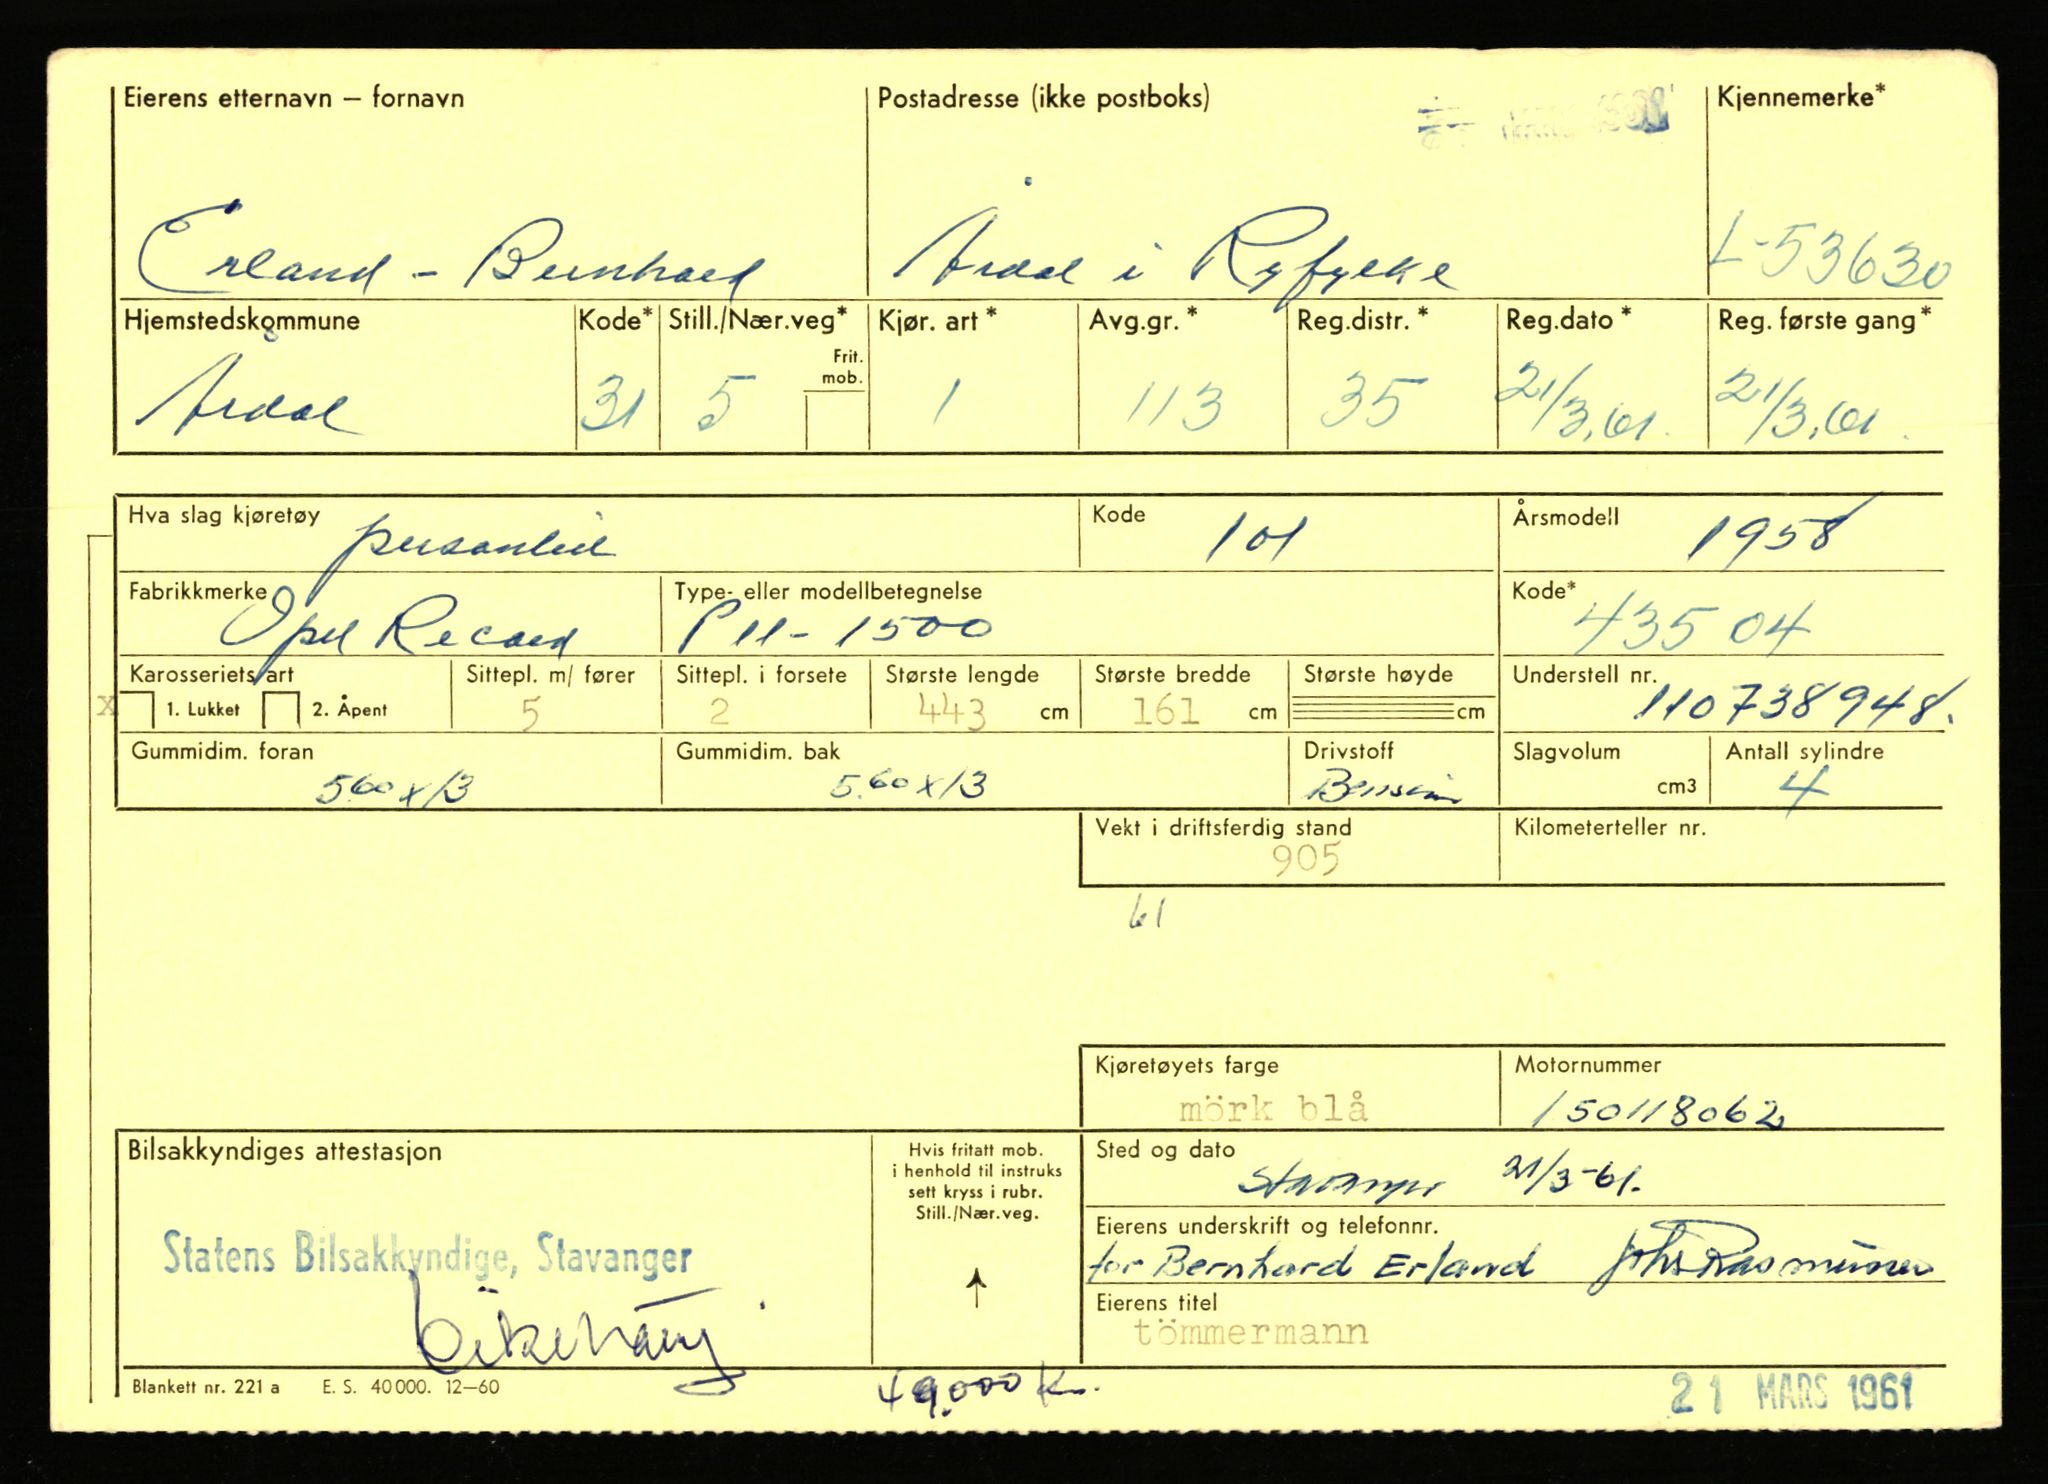 Eierens etternavn – fornavn
Postadresse (ikke postboks)
Kjennemerke*
Erland - Bernhard
Årdal i Ryfylke
L-53630
Hjemstedskommune
Kode*
Still./Nær.veg*
Frit. mob.
Kjør. art *
Avg.gr. *
Reg.distr. *
Reg.dato *
Reg. første gang *
Årdal
31
5
1
113
35
21/3.61.
21/3.61.
Hva slag kjøretøy
personbil
Kode
101
Årsmodell
1958
Fabrikkmerke
Opel Record
Type- eller modellbetegnelse
P11- 1500
Kode*
43504
Karosseriets art
x 1. Lukket 2. Åpent
Sittepl. m/ fører
5
Sittepl. i forsete
2
Største lengde
443 cm
Største bredde
161 cm
Største høyde
cm
Understell nr.
110738948.
Gummidim. foran
560x13
Gummidim. bak
5.60x13
Drivstoff
Bensin
Slagvolum
cm3
Antall sylindre
4
Vekt i driftsferdig stand
905
Kilometerteller nr.
61
Kjøretøyets farge
mörk blå
Motornummer
150118062
Bilsakkyndiges attestasjon
Statens Bilsakkyndige, Stavanger
Hvis fritatt mob.
i henhold til instruks
sett kryss i rubr.
Still./Nær.veg.
↑
Sted og dato
Stavanger 21/3-61.
Eierens underskrift og telefonnr.
for Bernhard Erland Johs Rasmussen
Eierens titel
tömmermann
Blankett nr. 221 a E. S. 40 000. 12—60
49.000 Km.
21 MARS 1961